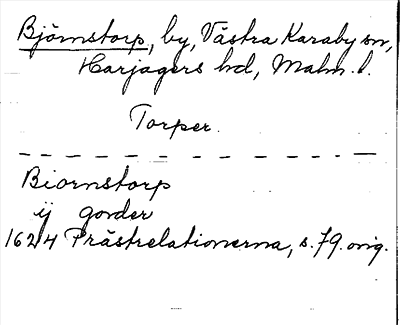 Björnstorp, by, Västra Karaby sn,
Harjagers hd, Malm. l.
Torper.
Biornstorp
ij gorder
1624 Prästrelationerna, s. 79. orig.